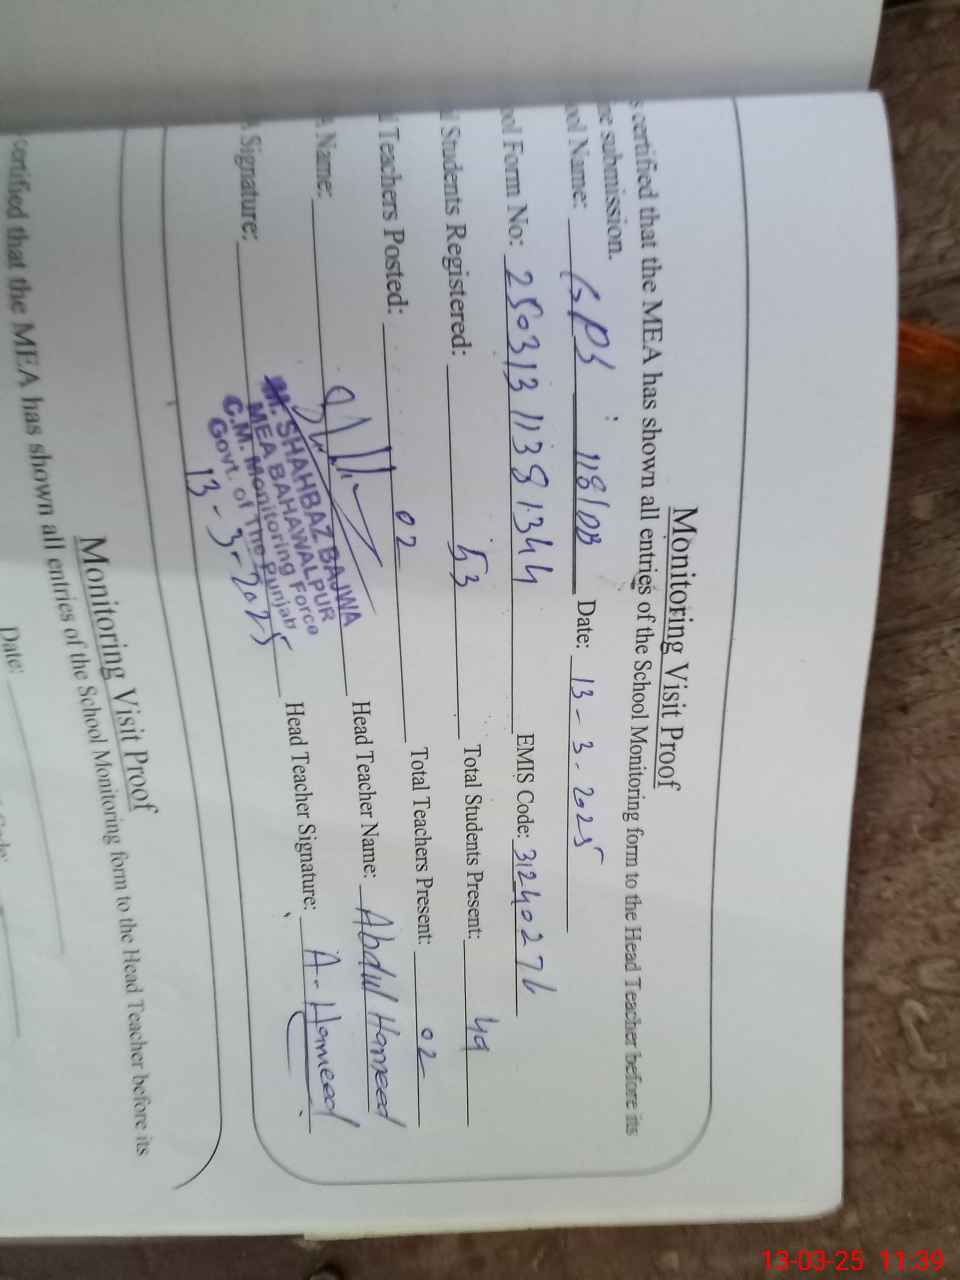 Monitoring Visit Proof
certified that the MEA has shown all entries of the School Monitoring form to the Head Teacher before its
submission.
Name: GPS 118/DB Date: 13-3-2025
Form No: EMIS Code: 31240276
Students Registered: 53 Total Students Present: 49
Teachers Posted: 02 Total Teachers Present: 02
Name: Head Teacher Name: Abdul Hameed
Signature: Head Teacher Signature: A-Hameed
M. SHAHBAZ BAJWA
MEA BAHAWALPUR
C.M. Monitoring Force
Govt. of The Punjab
13-3-2025
Monitoring Visit Proof
certified that the MEA has shown all entries of the School Monitoring form to the Head Teacher before its
Date:
13-03-25 11:39